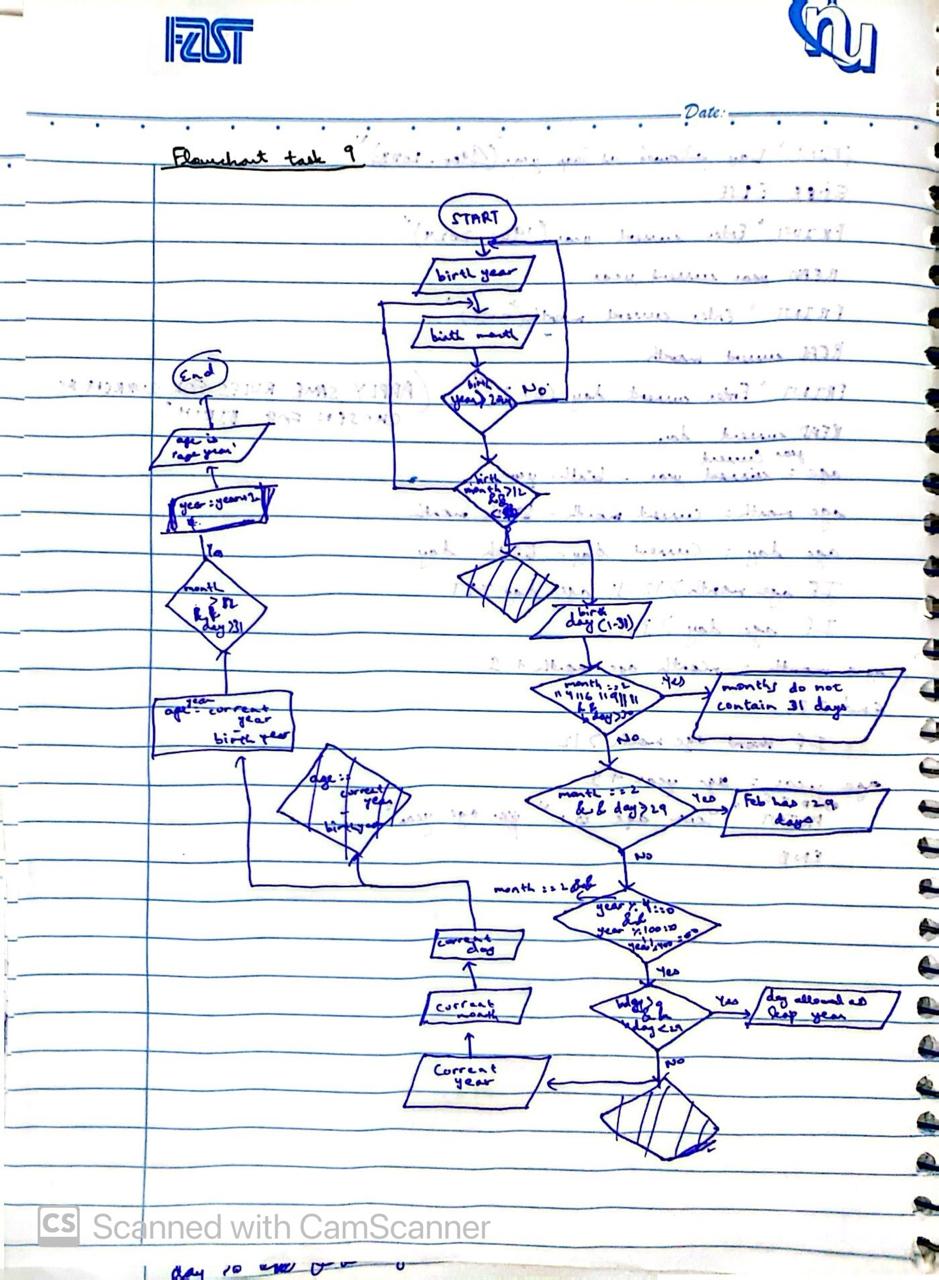 FAST
nu
Date:
Flowchart task 9
START
birth year
birth month
birth
year >
No
birth
month >12
&&
birth
day (1-31)
month == 2
|| 4 || 6 || 9 || 11
&&
Yes
months do not
contain 31 days
No
month == 2
&& day > 29
Yes
Feb has 29
days
No
month == 2 &&
year % 4 == 0
&&
year % 100
Yes
&&
bday < 29
Yes
day allowed as
leap year
No
Current
year
current
month
current
day
age ==
current
year
-
birth year
year
age = current
year
-
birth year
month
&&
day > 31
Yes
age is
'age year'
End
CS Scanned with CamScanner